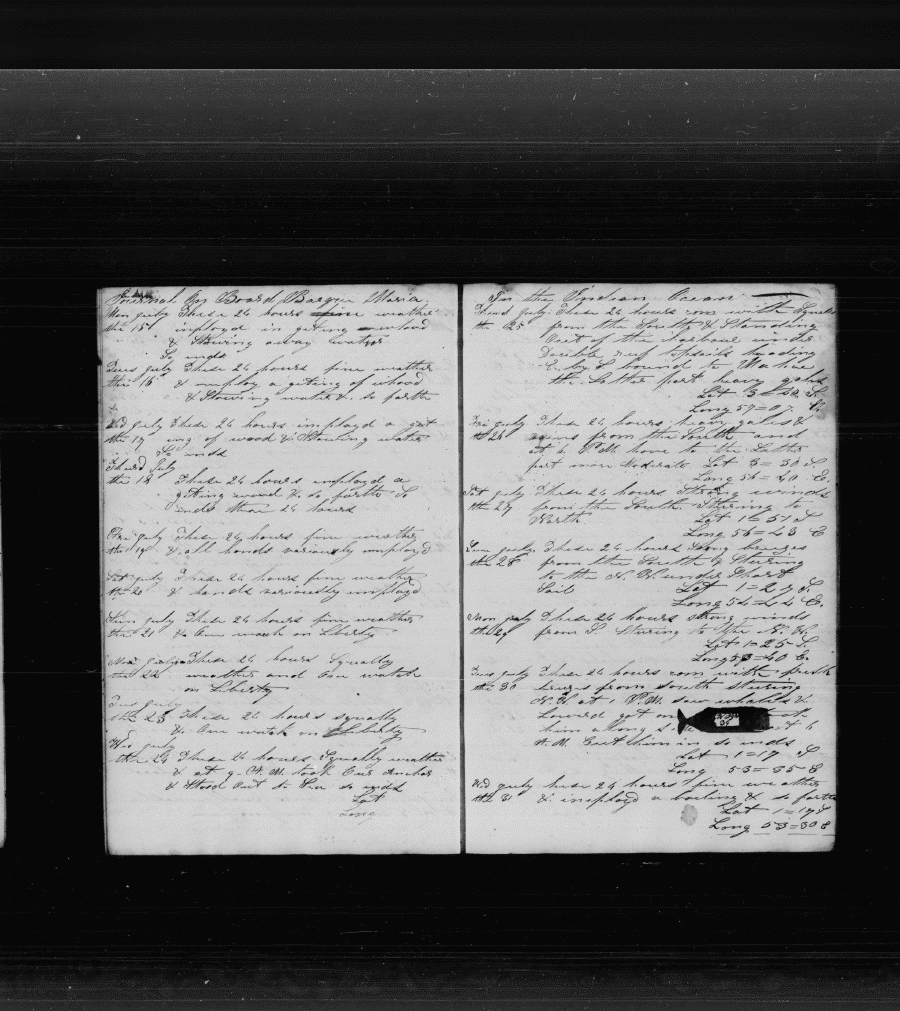 Journal On Board Barque Maria
Mon July These 24 hours fine weather
the 15 imployd in giting whood
& Stowing away water
So ends
Tues July These 24 hours fine weather
the 16 & employ a giting of whood
& Stowing water & so forth
Wed July These 24 hours imployd a git
the 17 ing of wood & Stowing water
So ends
Thursd July
the 18 These 24 hours employd a
giting wood & so forth So
ends these 24 hours
Fri July These 24 hours fine weather
the 19 & all hands variously employd
Sat July These 24 hours fine weather
the 20 & hands variously employd
Sun July These 24 hours fine weather
the 21 & One watch on Liberty
Mon July These 24 hours Squally
the 22 weather and One watch
on Liberty
Tues July
the 23 These 24 hours squally
& One watch on Liberty
Wed July
the 24 These 24 hours Squally weather
& at 9 A.M. took Our Anchor
& Stood Out to Sea so ends
Lat
Long
In the Indian Ocean
Thursd July These 24 hours com with Squals
the 25 from the South & Standing
Out of the Harbour under
Double reef topsails heading
E. by S bound to Mahee
the Latter part heavy gales
Lat 3=40 S.
Long 57=07 E.
Fri July These 24 hours heavy gales &
the 26 rains from the South and
at 4 P.M. hove to the Latter
part more Moderate Lat 3=30 S
Long 56=40 E.
Sat July These 24 hours Strong winds
the 27 from the South Stering to
North Lat 1=51 S
Long 56=43 E
Sun July These 24 hours Strong breezes
the 28 from the South & Stering
to the N. W. under Short
Sail Lat 1=27 S.
Long 54=44 E.
Mon July These 24 hours strong winds
the 29 from S Stering to the N. W.
Lat 1=25 S.
Long 53=40 E.
Tues July These 24 hours com with fresh
the 30 brezes from South stering
N. W. at 1 P.M. saw whales &
Lowered got on
him along s at 4
A. M. Cut him in so ends
Lat 1=17 S
Long 53=35 E
Wed July hese 24 hours fine weather
the 31 & imployd a boiling & so forth
Lat 1=17 S
Long 53=30 E